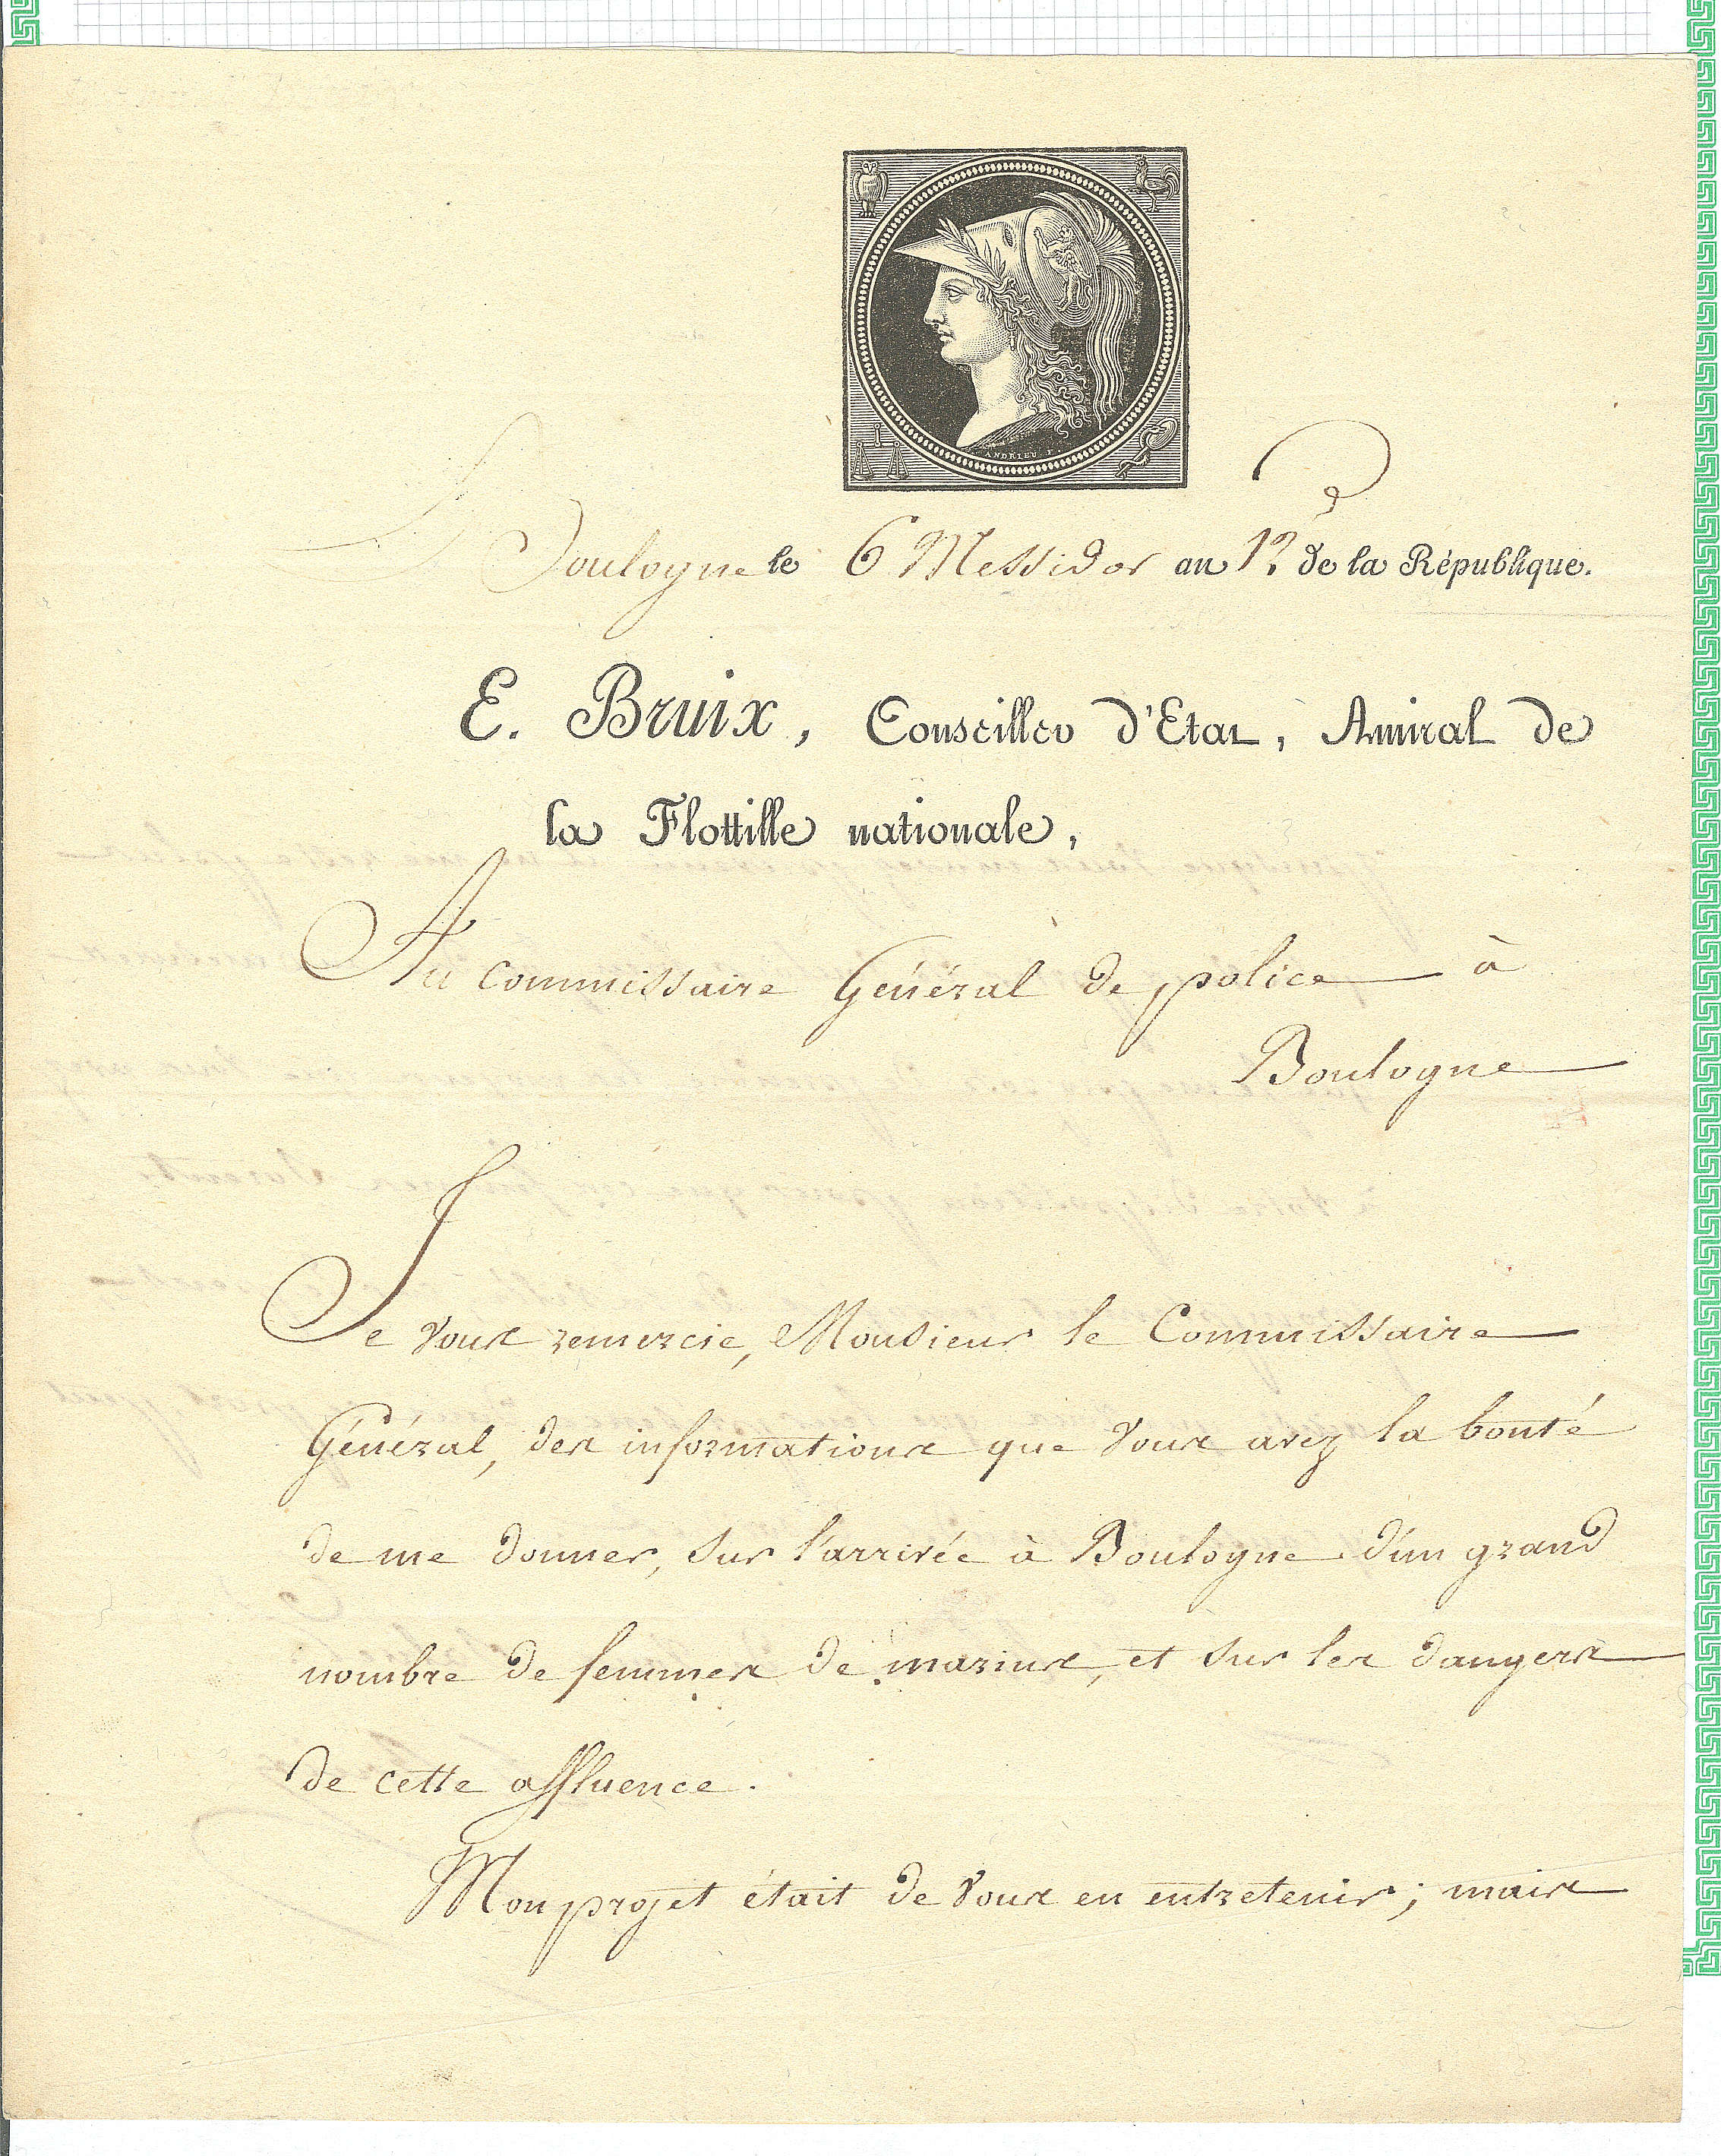 ANDRIEU F.
Boulogne le 6 Messidor an 12 de la République.
E. Bruix, Conseiller d'Etat, Amiral de
la Flottille nationale,
Au Commissaire Général de police à
Boulogne
Je vous remercie, Monsieur le Commissaire
Général, des informations que vous avez la bonté
de me donner, sur l'arrivée à Boulogne d'un grand
nombre de femmes de marins, et sur les dangers
de cette affluence.
Mon projet était de vous en entretenir; mais